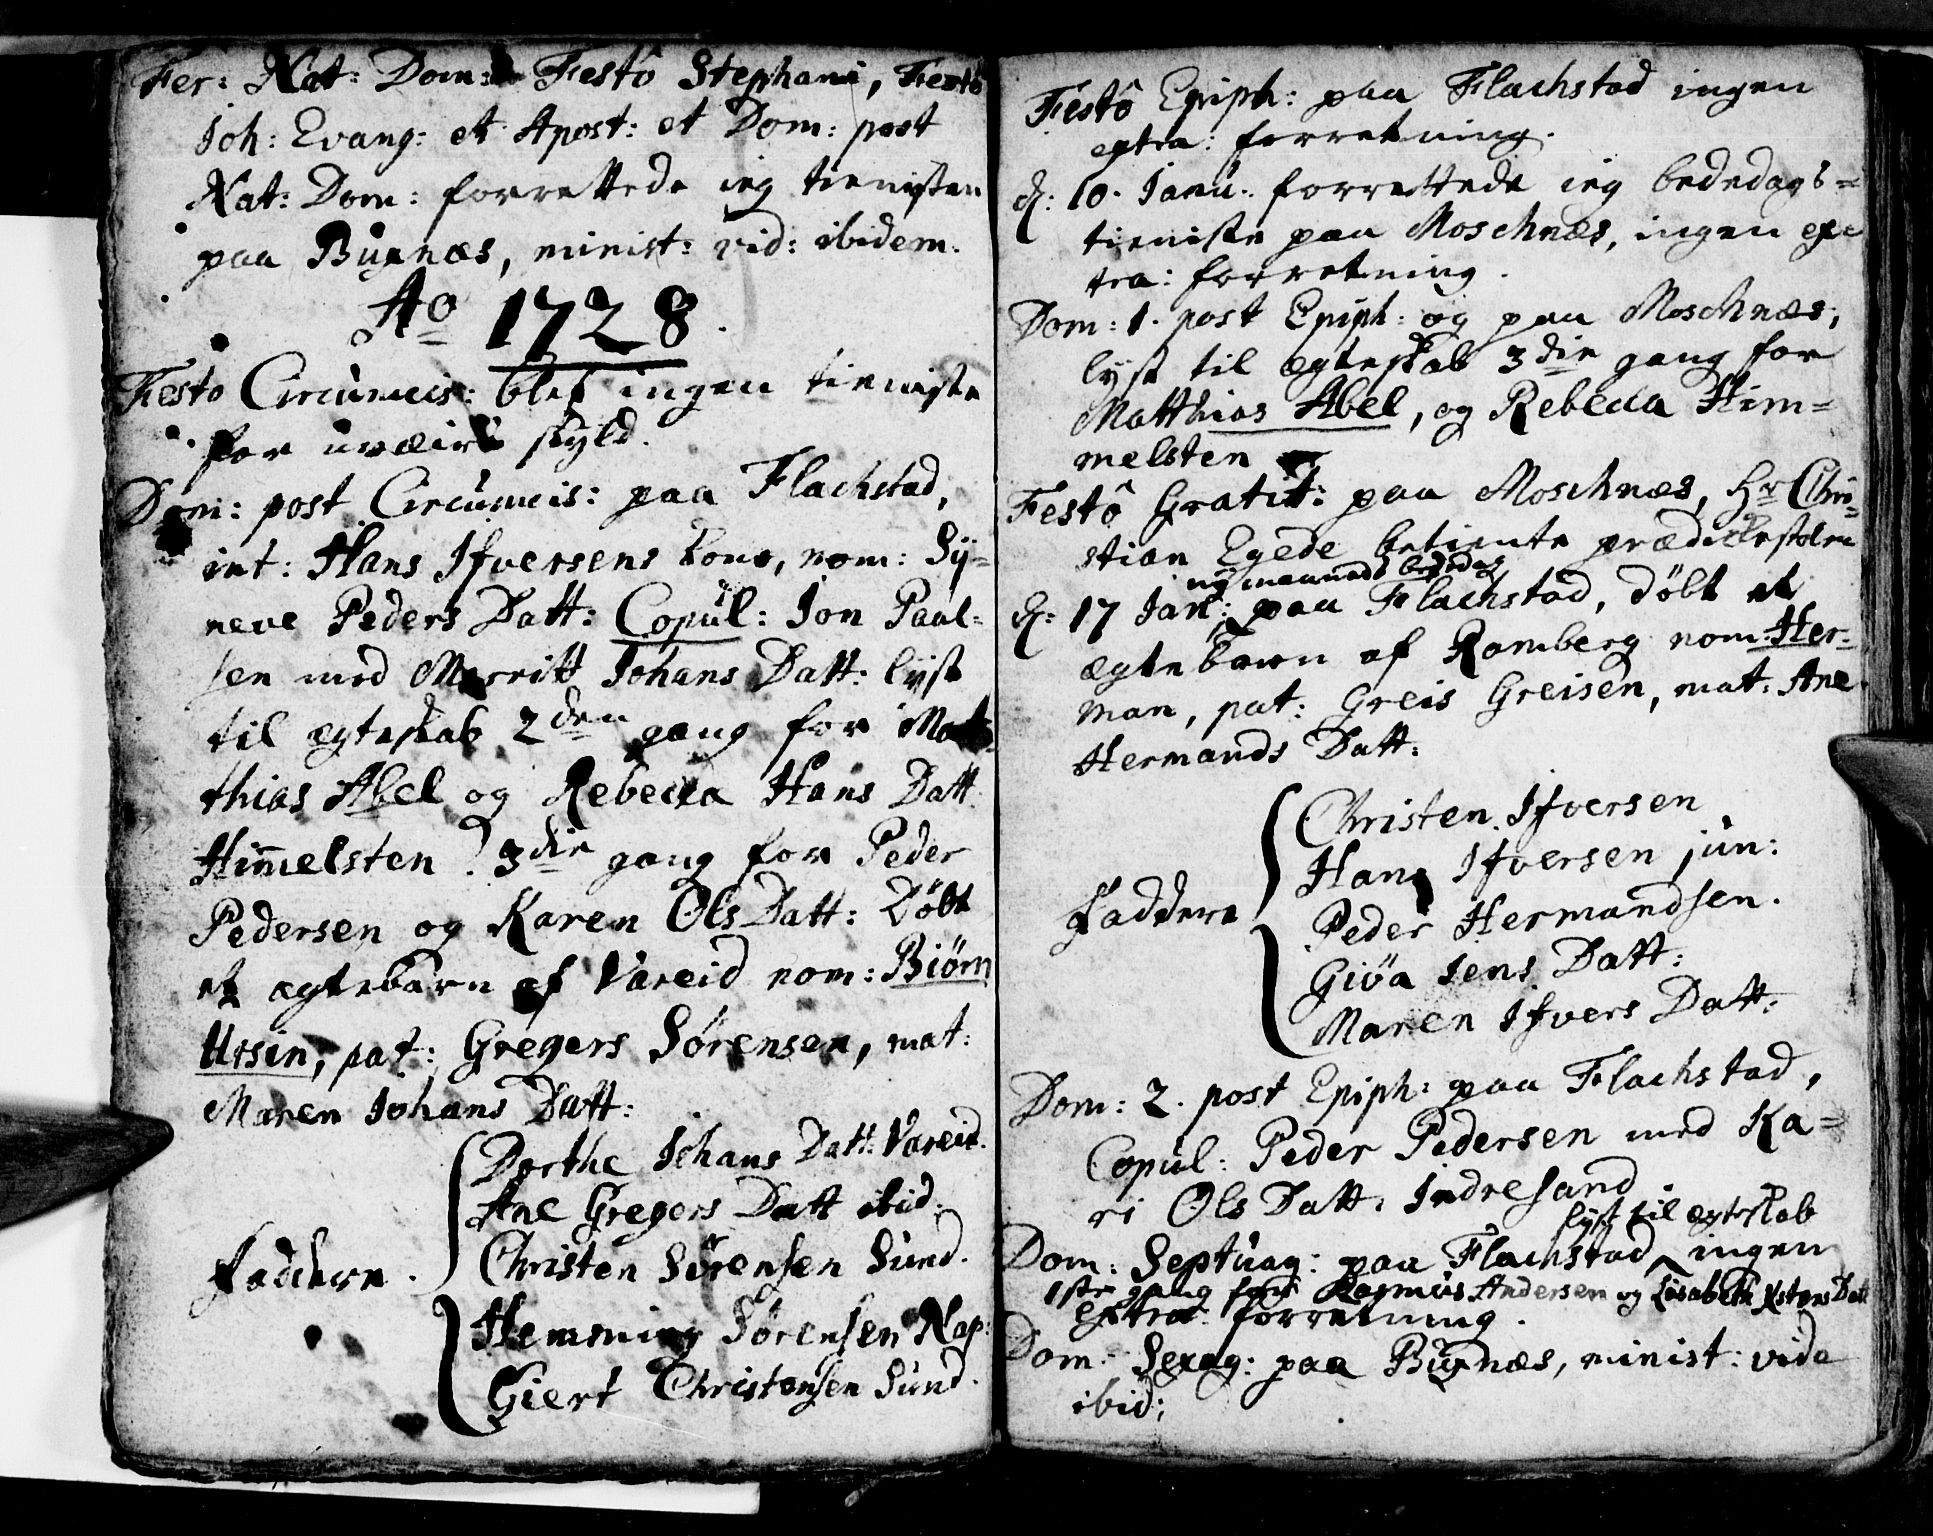 Fer: Nat: Dom: Festô Stephani, Festô
Joh: Evang: et Apost: et Dom: post
Nat: Dom: forrettede ieg tienisten
paa Buxnæs, minist: vid: ibidem.
Aº 1728.
Festo Circumcis: blef ingen tieniste
for uvæirs skyld.
Dom: post Circumcis: paa Flachstad,
int: Hans Ifversens Kone, nom: Sy=
neve Peders Datt: Copul: Jon Paal=
sen med Marritt Johans Datt: lyst
til ægteskab 2den gang for Mat=
thias Abel og Rebecca Hans Datt
Himmelsten. 3die gang for Peder
Pedersen og Karen Ols Datt: Döbt
et ægtebarn af Vareid nom: Biörn
Ursin, pat: Gregers Sörensen, mat:
Maren Johans Datt:
Dorthe Johans Datt: Vareid.
Ane Gregers Datt ibid:
Faddere.
Christen Sörensen Sund.
Hemming Sörensen Nap:
Giert Christensen Sund.
Festô Epiph: paa Flachstad ingen
extra: forretning.
d: 10. Janu. forrettede ieg bededags=
tieniste paa Moschnæs, ingen ex=
tra: forretning.
Dom: 1. post Epiph: og paa Moschnæs,
lyst til ægteskab 3die gang for
Matthias Abel, og Rebecca Him=
melsten
Festô Gratit: paa Moschnæs, Hr Chri=
stian Egede betiente prædickestolen
ny maaneds bededag
d: 17 Jan: paa Flachstad, döbt et
ægtebarn af Ramberg nom: Her=
man, pat: Greis Greisen, mat: Ane
Hermands Datt:
Christen Ifversen
Hans Ifversen jun:
Faddere
Peder Hermandsen.
Giöa Jens Datt:
Maren Ifvers Datt:
Dom: 2. post Epiph: paa Flachstad,
Copul: Peder Pedersen med Ka=
ri Ols Datt: Indresand
lyst til ægteskab
Dom: Septuag: paa Flachstad ingen
1ste gang for Rasmus Andersen og Lisabeth Datt
extra forretning.
Dom: Sexag: paa Buxnæs, minist: vide
ibid: